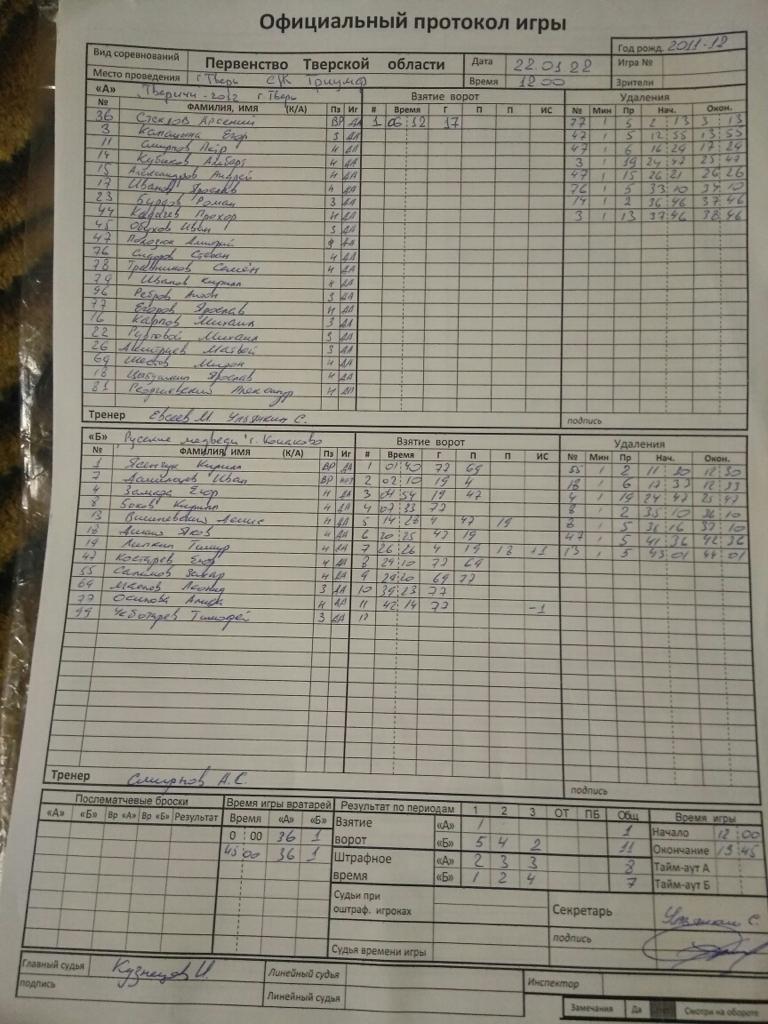 Официальный протокол игры
Год рожд. 2011-12
Вид соревнований Первенство Тверской области Дата 22.01.22 Игра №
Место проведения г Тверь С/К Триумф Время 12 00 Зрители
«А» Тверичи-2012 г Тверь Взятие ворот Удаления
№ ФАМИЛИЯ, ИМЯ (К/А) Пз Иг # Время Г П П ИС № Мин Пр Нач. Окон.
36 Стеклов Арсений ВР ДА 1 06 12 17 77 1 5 2 13 3 13
3 Егор З ДА 47 1 5 12 55 13 55
11 Смирнов Пётр Н ДА 47 1 6 16 24 17 24
14 Кубиков Н ДА 3 1 19 24 47 25 47
15 Александров Андрей Н ДА 47 1 15 26 21 26 26
17 Иванов Ярослав Н ДА 76 1 5 33 10 34 10
23 Бурдов Роман З ДА 14 1 2 36 46 37 46
44 Прохор Н ДА 3 1 13 37 46 38 46
45 Обухов Иван З ДА
47 Дмитрий ДА
76 Сидоров Степан Н ДА
78 Травников Семён Н ДА
79 Иванов Кирилл Н ДА
96 Антон З ДА
77 Егоров Ярослав Н ДА
16 Карпов Михаил З ДА
22 Михаил З ДА
26 Дмитриев Матвей З ДА
69 Мирон Н ДА
18 Ярослав Н ДА
81 Александр Н ДА
Тренер Евсеев М. С.
подпись
«Б» Русские медведи г. Конаково Взятие ворот Удаления
№ ФАМИЛИЯ, ИМЯ (К/А) Пз Иг # Время Г П П ИС № Мин Пр Нач. Окон.
1 Кирилл ВР ДА 1 01 40 77 69 55 1 2 11 30 12 30
7 Данилов Иван ВР 2 02 10 19 4 18 1 6 12 33
4 Егор Н ДА 3 04 54 19 47 4 1 19 24 47 25 47
8 Боков Кирилл Н ДА 4 07 33 77 8 1 2 35 10 36 10
13 Вишневский Денис Н ДА 5 14 28 4 47 19 8 1 5 36 16 37 10
18 Яков Н ДА 6 20 25 47 19 47 1 5 41 36 42 36
19 Липкин Тимур Н ДА 7 26 26 4 19 13 +1 13 1 5 43 01 44 01
47 Костарев Егор Н ДА 8 29 10 77 69
55 Н ДА 9 29 20 69 77
69 Маслов Леонид З ДА 10 39 23 77
77 Осипова Н ДА 11 42 14 77 -1
99 Чеботарев Тимофей З ДА 12
Тренер Смирнов А.С.
подпись
Послематчевые броски Время игры вратарей Результат по периодам 1 2 3 ОТ ПБ Общ Время игры
«А» «Б» Вр «А» Вр «Б» Результат Время «А» «Б» Взятие ворот «А» 1 1 Начало 12 00
0 00 36 1 «Б» 5 4 2 11 Окончание 13 45
45 00 36 1 Штрафное время «А» 2 3 3 8 Тайм-аут А
«Б» 1 2 4 7 Тайм-аут Б
Судьи при оштраф. игроках Секретарь С.
Судья времени игры подпись
Главный судья Кузнецов И. Линейный судья Инспектор
подпись Линейный судья
Замечания Да Смотри на обороте